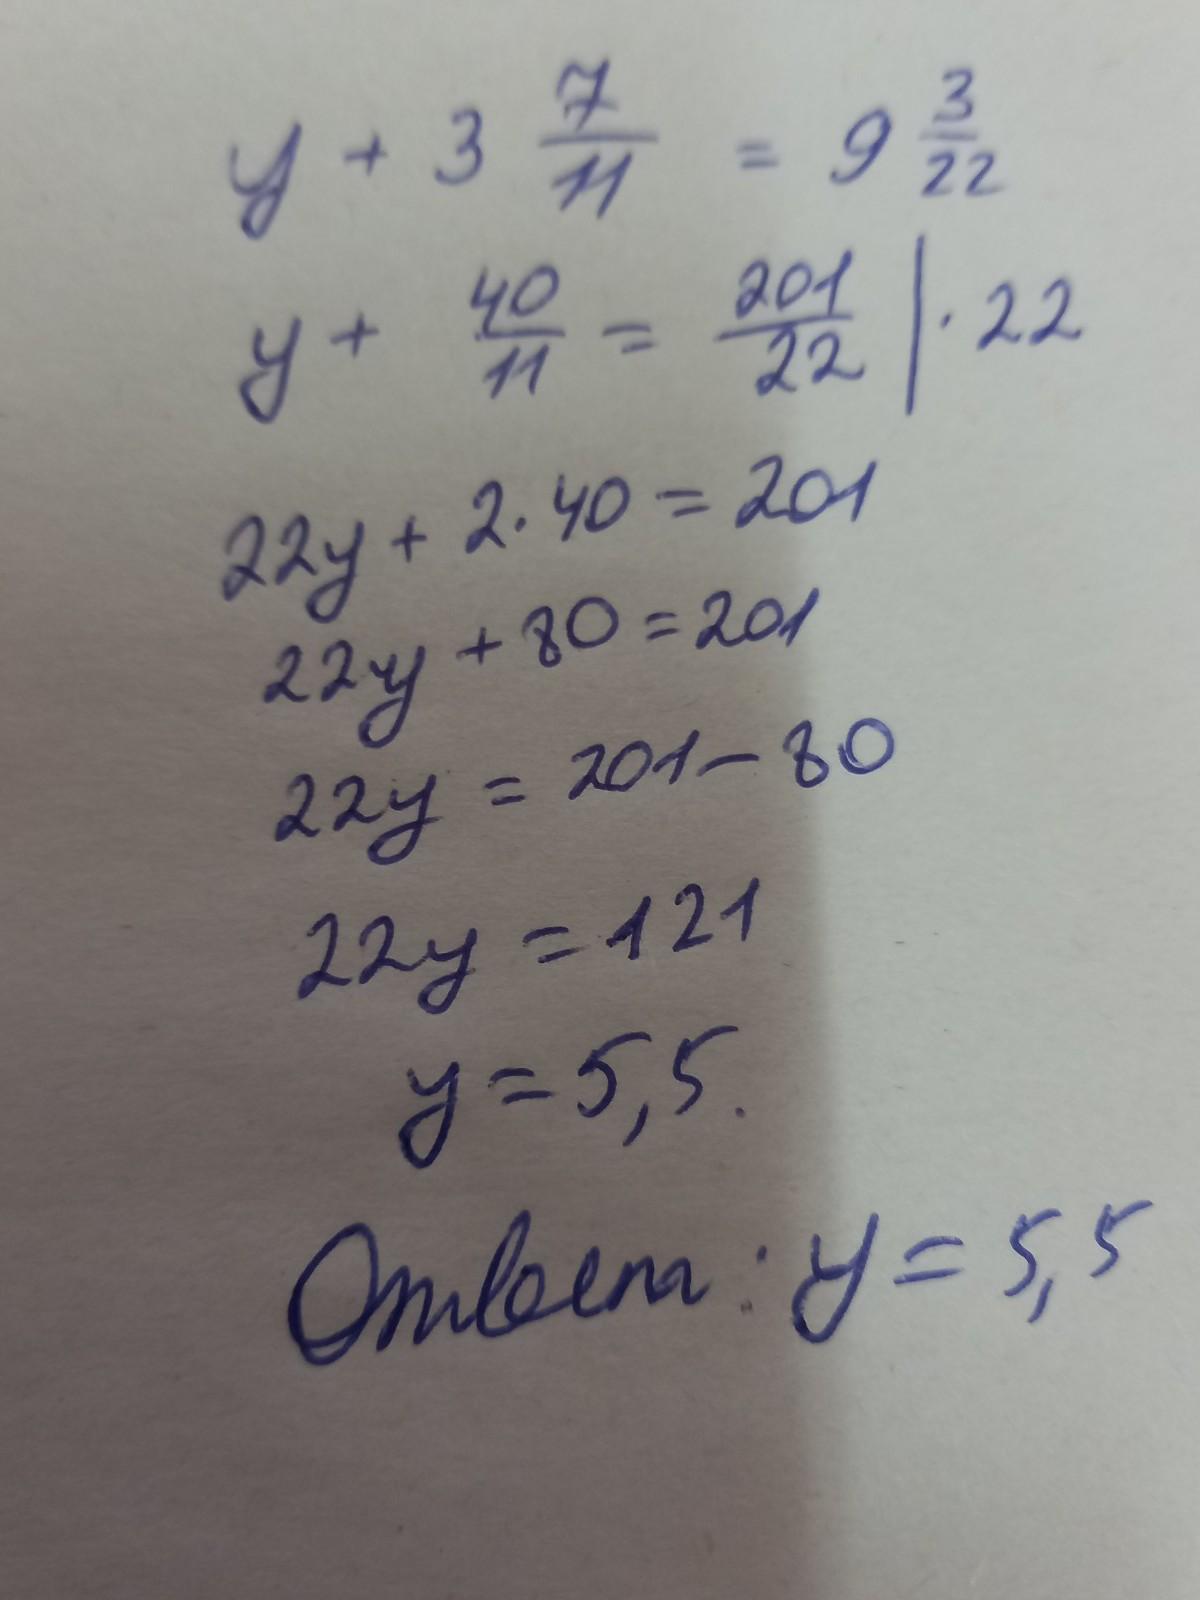 y + 3 7/11 = 9 3/22
y + 40/11 = 201/22 | · 22
22y + 2 · 40 = 201
22y + 80 = 201
22y = 201 - 80
22y = 121
y = 5,5.
Ответ: y = 5,5